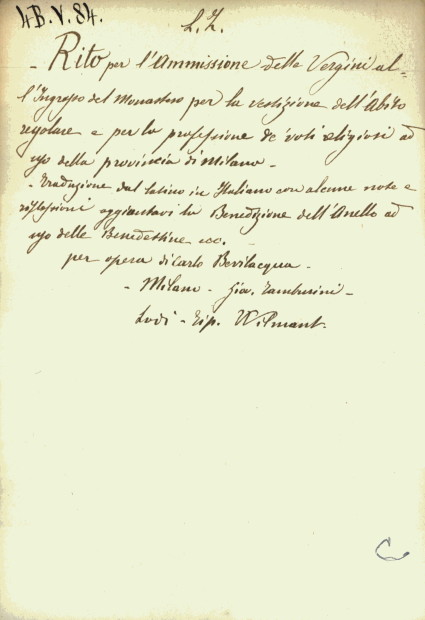 4B.V.84.
L.Z.
- Rito per l'Ammissione delle Vergini al-
l'Ingresso del Monastero per la vestizione dell'Abito
regolare e per la professione de' voti religiosi ad
uso della provincia di Milano -
- Traduzione dal latino in Italiano con alcune note e
riflessioni aggiuntavi la Benedizione dell'Anello ad
uso delle Benedettine ecc.
per opera di Carlo Bevilacqua -
- Milano - Gio. Tamburini -
Lodi - Tip. Wilmant.